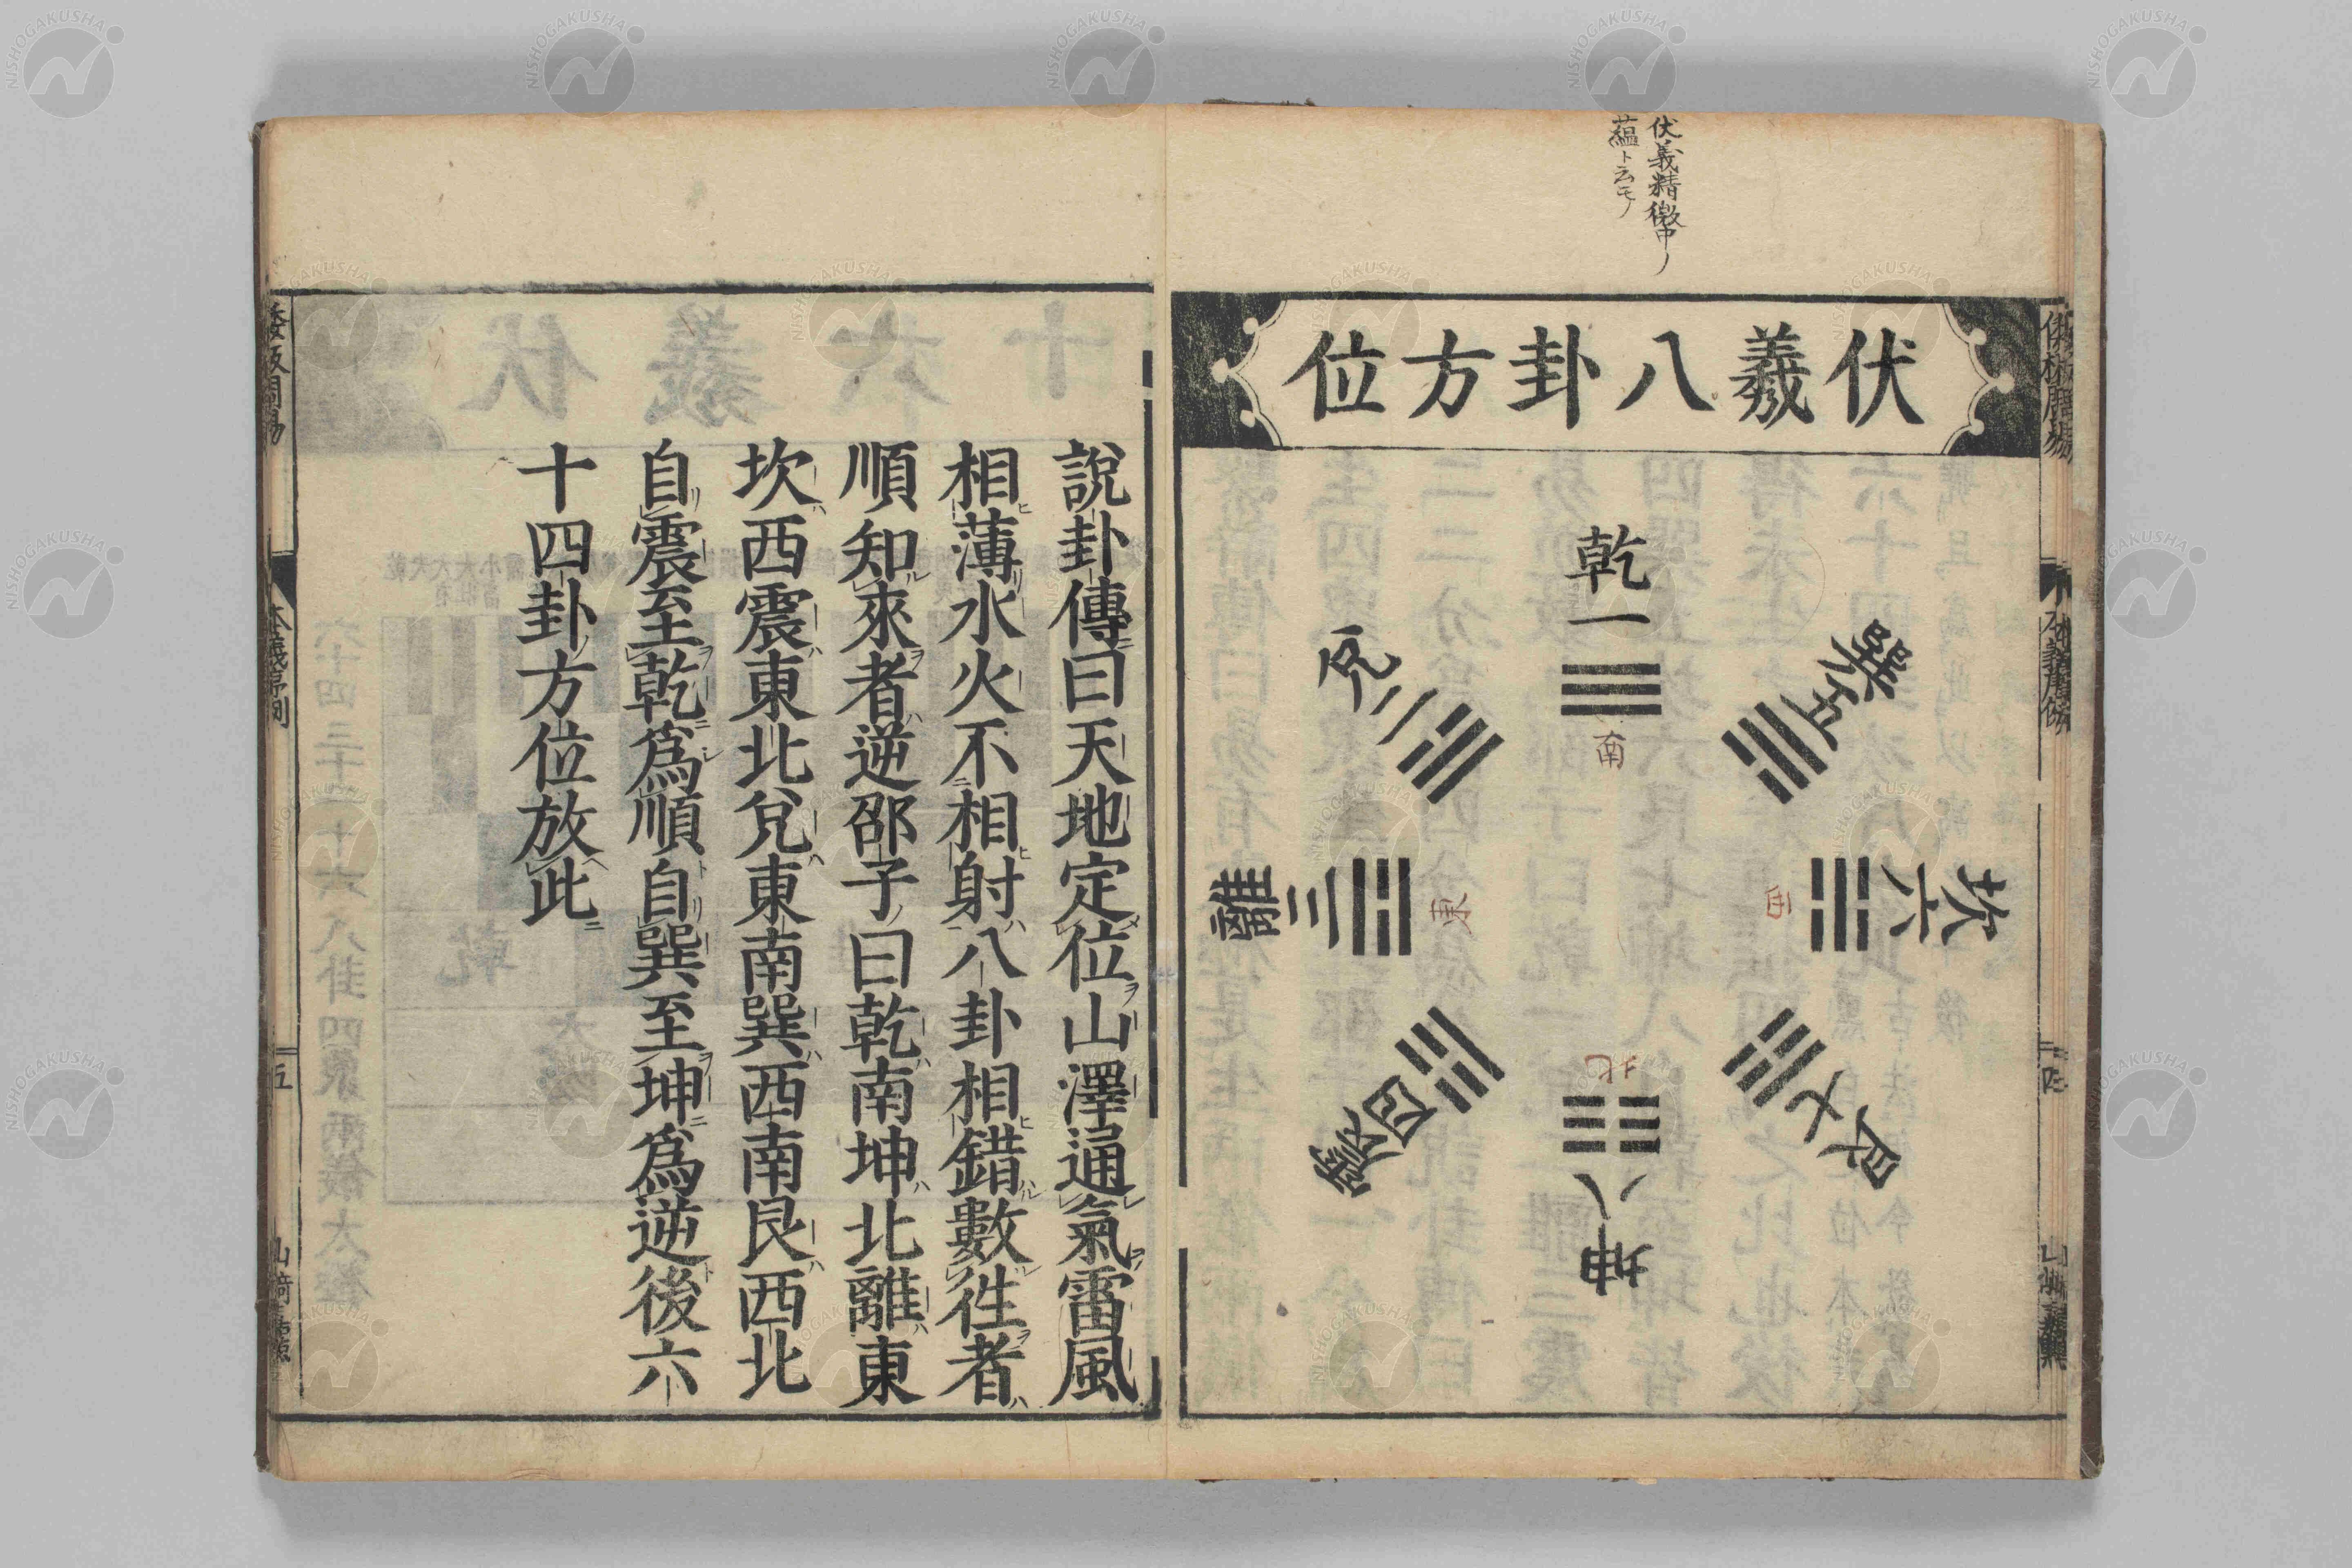 伏羲精微中ノ
蘊ト云モノ
伏羲八卦方位
乾一
南
兌二
離三
東
震四
巽五
坎六
西
艮七
坤八
北
說卦傳曰天地定位山澤通氣雷風
相薄水火不相射八卦相錯數徃者
順知來者逆邵子曰乾南坤北離東
坎西震東北兌東南巽西南艮西北
自震至乾爲順自巽至坤爲逆後六
十四卦方位放此
五
NISHOGAKUSHA